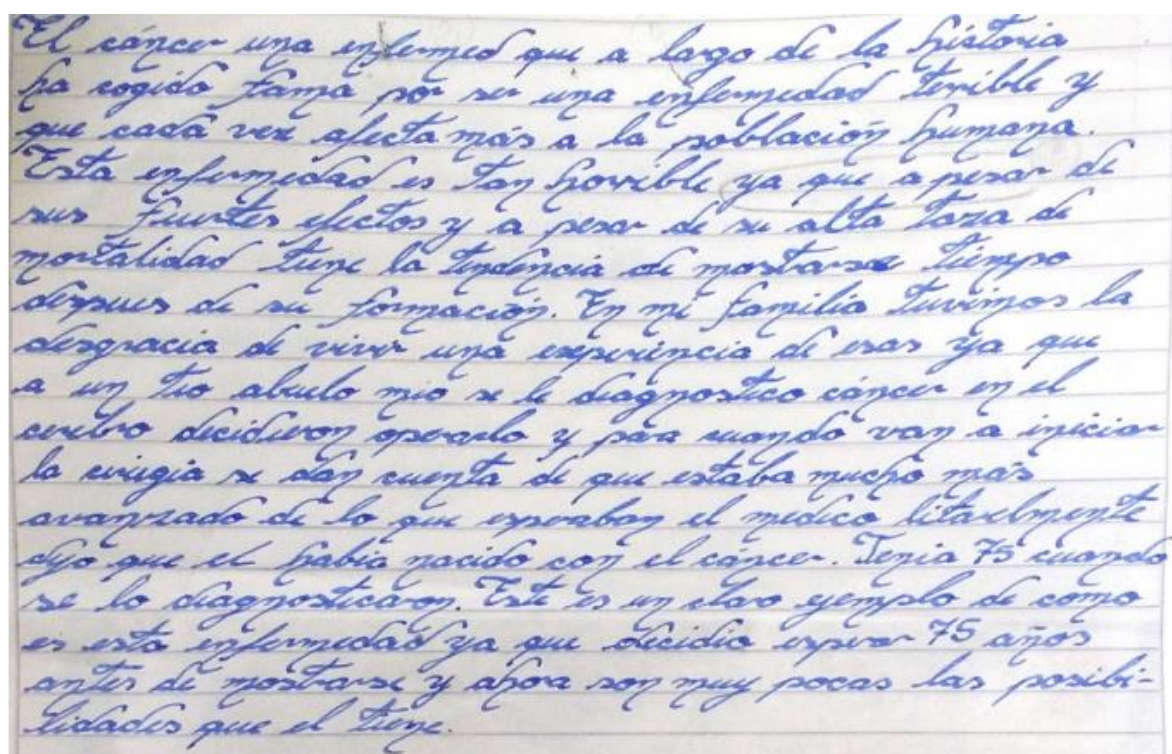 El cáncer una enfermed que a largo de la história
ha cogido fama por ser una enfermedad terible y
que cada vez afecta más a la población humana.
Esta enfermedad es tan horrible ya que a pesar de
sus fuertes efectos y a pesar de su alta taza de
mortalidad tiene la tendencia de mostrarse tiempo
despues de su formación. En mi familia tuvimos la
desgracia de vivir una experiencia de esas ya que
a un tio abuelo mio se le diagnostico cáncer en el
cerebro decidieron operarlo y para cuando van a iniciar
la cirugia se dan cuenta de que estaba mucho más
avanzado de lo que esperaban el medico litaralmente
dijo que el habia nacido con el cáncer. Tenia 75 cuando
se lo diagnosticaron. Este es un claro ejemplo de como
es esta enfermedad ya que decidio esperar 75 años
antes de mostrarse y ahora son muy pocas las posibi-
lidades que el tiene.